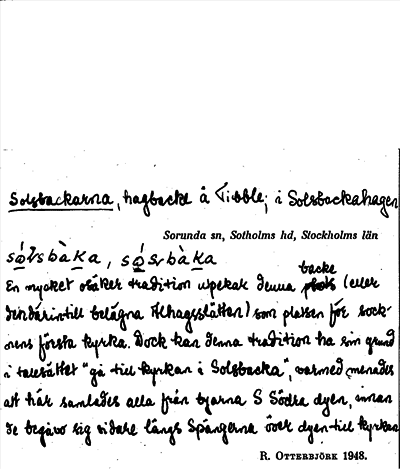 Solsbackarna, hagbacke å Tibble; i Solsbackahagen
Sorunda sn, Sotholms hd, Stockholms län
backe
En mycket osäker tradition utpekar denna plats (eller
den därintill belägna Ålhagsslätten) som platsen för sock-
nens första kyrka. Dock kan denna tradition ha sin grund
i talesättet "gå till kyrkan i Solsbacka", varmed menades
att här samlades alla från byarna S Södra dyen, innan
de begåvo sig vidare längs Spångerna över dyen till kyrkan
R. OTTERBJÖRK 1948.